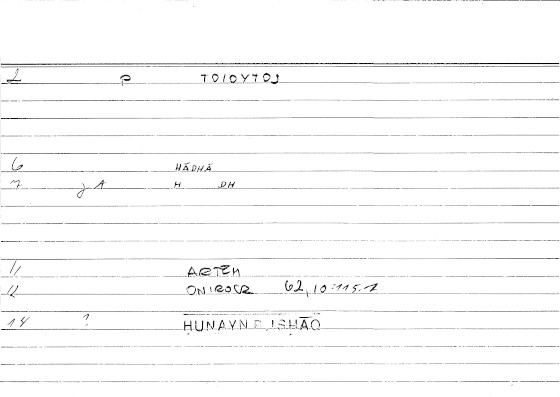 2 P TOIOYTOJ
6 HĀDHĀ
7 J A H DH
11 ARTEM
12 ONIROCR 62,10:115.1
14 ? ḤUNAYN B. ISḤĀQ